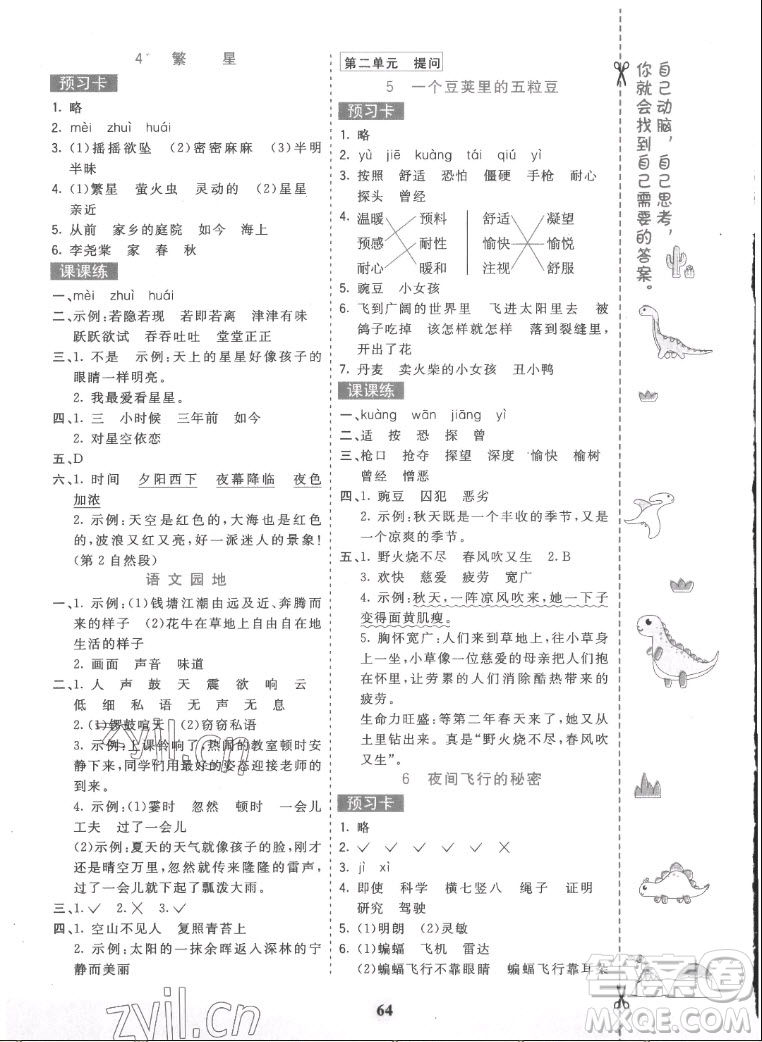 4* 繁 星
预习卡
1. 略
2. mèi zhuì huái
3. (1)摇摇欲坠 (2)密密麻麻 (3)半明
半昧
4. (1)繁星 萤火虫 灵动的 (2)星星
亲近
5. 从前 家乡的庭院 如今 海上
6. 李尧棠 家 春 秋
课课练
一、mèi zhuì huái
二、示例:若隐若现 若即若离 津津有味
跃跃欲试 吞吞吐吐 堂堂正正
三、1. 不是 示例:天上的星星好像孩子的
眼睛一样明亮。
2. 我最爱看星星。
四、1. 三 小时候 三年前 如今
2. 对星空依恋
五、D
六、1. 时间 夕阳西下 夜幕降临 夜色
加浓
2. 示例:天空是红色的,大海也是红色
的,波浪又红又亮,好一派迷人景象!
(第 2 自然段)
语文园地
一、1. 示例:(1)钱塘江潮由远及近、奔腾而
来的样子 (2)花牛在草地上自由自在地
生活的样子
2. 画面 声音 味道
二、1. 人 声 鼓 天 震 欲 响 云
低 细 私 语 无 声 无 息
2. (1)锣鼓喧天 (2)窃窃私语
3. 示例:上课铃响了,热闹的教室顿时安
静下来,同学们用最好的姿态迎接老师的
到来。
4. 示例:(1)霎时 忽然 顿时 一会儿
工夫 过了一会儿
(2)示例:夏天的天气就像孩子的脸,刚才
还是晴空万里,忽然就有了隆隆的雷声,
过了一会儿就下起了瓢泼大雨。
三、1. ✓ 2. × 3. ✓
四、1. 空山不见人 复照青苔上
2. 示例:太阳的一抹余晖迎入深林的宁
静而美丽
第二单元 提问
5 一个豆荚里的五粒豆
预习卡
1. 略
2. yù jiē kuàng tái qiú yì
3. 按照 舒适 恐怕 僵硬 手枪 耐心
探头 曾经
4. 温暖 预料 舒适 凝望
预感 耐性 愉快 愉悦
耐心 暖和 注视 舒服
5. 豌豆 小女孩
6. 飞到广阔的世界里 飞进太阳里去 被
鸽子吃掉 该怎样就怎样 落到裂缝里,
开出了花
7. 丹麦 卖火柴的小女孩 丑小鸭
课课练
一、kuàng wān jiāng yì
二、适 按 恐 探 曾
三、枪口 抢夺 探望 深度 愉快 榆树
曾经 憎恶
四、1. 豌豆 囚犯 恶劣
2. 示例:秋天是一个丰收的季节,又是
一个凉爽的季节。
五、1. 野火烧不尽 春风吹又生 2. B
3. 欢快 慈爱 疲劳 宽广
4. 示例:秋天,一阵凉风吹来,她一下子
变得面黄肌瘦。
5. 胸怀宽广:人们来到草地上,在小草身
上一坐,小草像一位慈爱的母亲把人们抱
在怀里,让劳累的人们消除酷热带来的
疲劳。
生命力旺盛:等第二年春天来了,她又从
土里钻出来。真是“野火烧不尽,春风吹
又生”。
6 夜间飞行的秘密
预习卡
1. 略
2. ✓ ✓ ✓ ✓ ×
3. jì xì
4. 即使 科学 横七竖八 绳子 证明
研究 驾驶
5. (1)明朗 (2)灵敏
6. (1)蝙蝠 飞机 雷达
(2)蝙蝠飞行不靠眼睛 蝙蝠飞行靠耳朵
64
自己动脑,自己思考,
你就会找到自己需要的答案。
zyjl.cn
zyjl.cn
答案圈
MXQE.COM